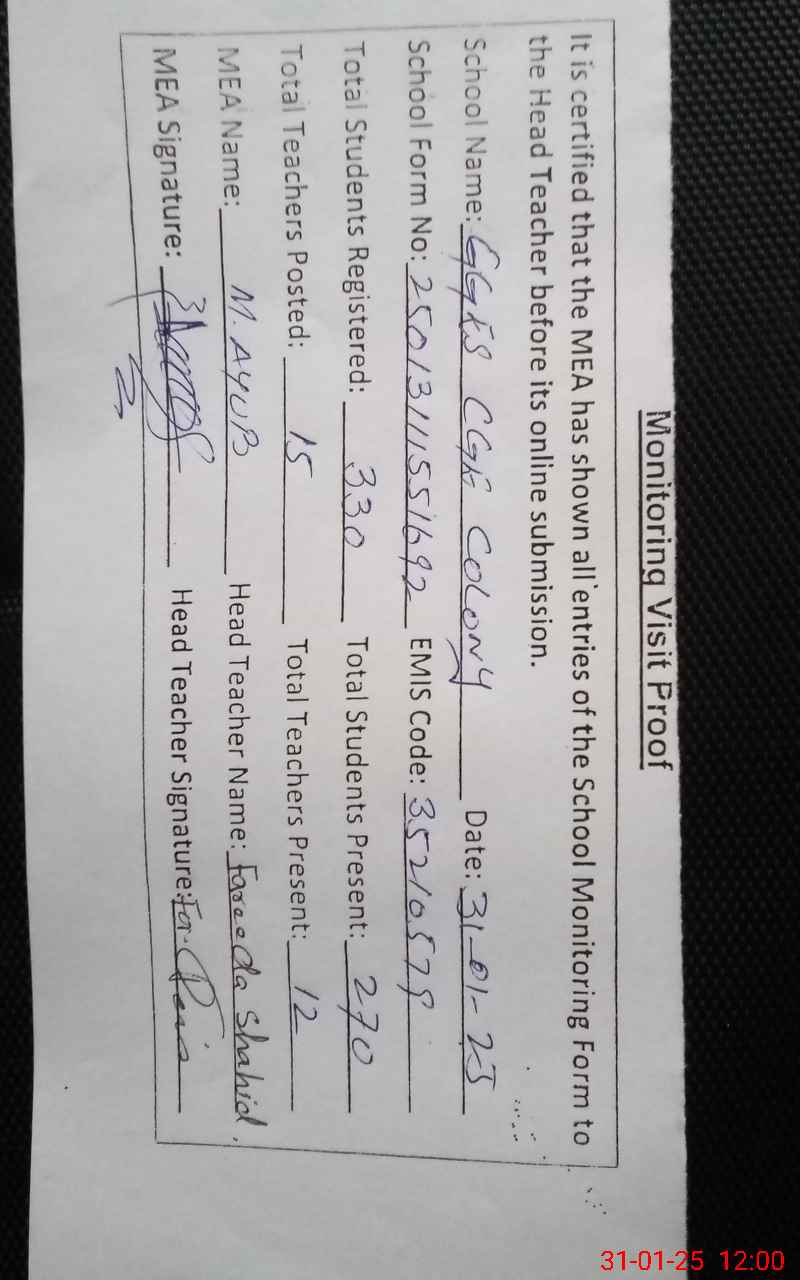 Monitoring Visit Proof
It is certified that the MEA has shown all entries of the School Monitoring Form to
the Head Teacher before its online submission.
School Name: GGHS CGE COLONY Date: 31-01-25
School Form No: 25013111551692 EMIS Code: 35210579
Total Students Registered: 330 Total Students Present: 270
Total Teachers Posted: 15 Total Teachers Present: 12
MEA Name: M. AYUB Head Teacher Name: Fareeda Shahid
MEA Signature: Head Teacher Signature: For
31-01-25 12:00